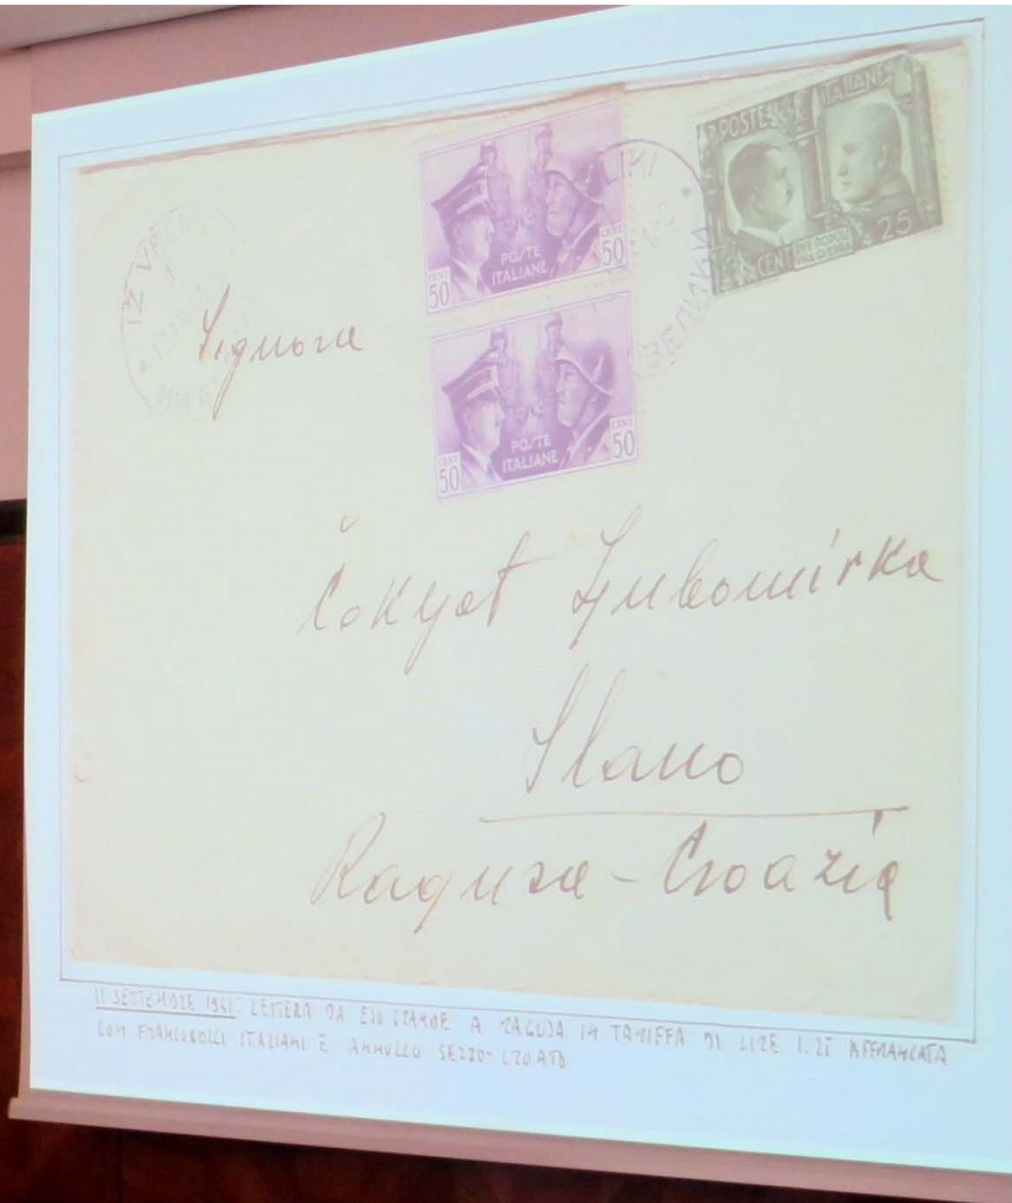 POSTE ITALIANE
CENT 25
DUE POPOLI
UNA GUERRA
CENT 50
POSTE
ITALIANE
50
CENT 50
POSTE
ITALIANE
CENT 50
ВЕЛИКИ
Signora
Ljubomirka
Slano
Ragusa - Croazia
11 SETTEMBRE 1941. LETTERA DA ESO GRANDE A RAGUSA IN TARIFFA DI LIRE 1.25 AFFRANCATA
CON FRANCOBOLLI ITALIANI E ANNULLO SERBO-CROATO